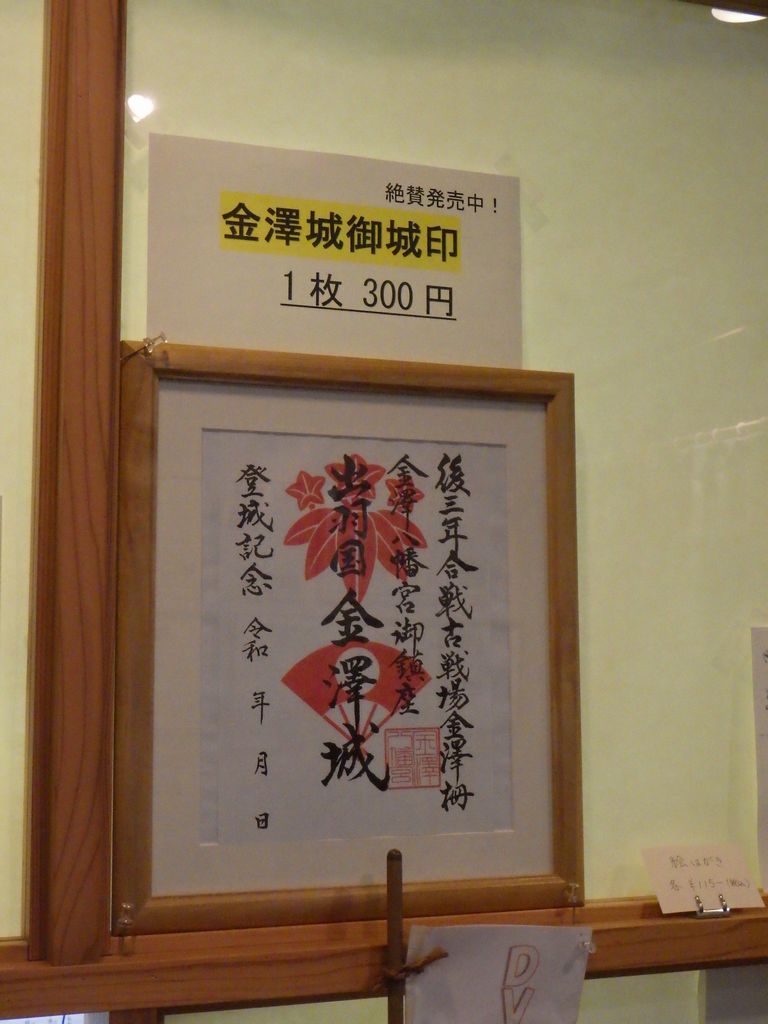 絶賛発売中!
金澤城御城印
1枚 300円
後三年合戦古戦場金澤柵
金澤八幡宮御鎮座
出羽国金澤城
登城記念 令和 年 月 日
絵はがき
DV